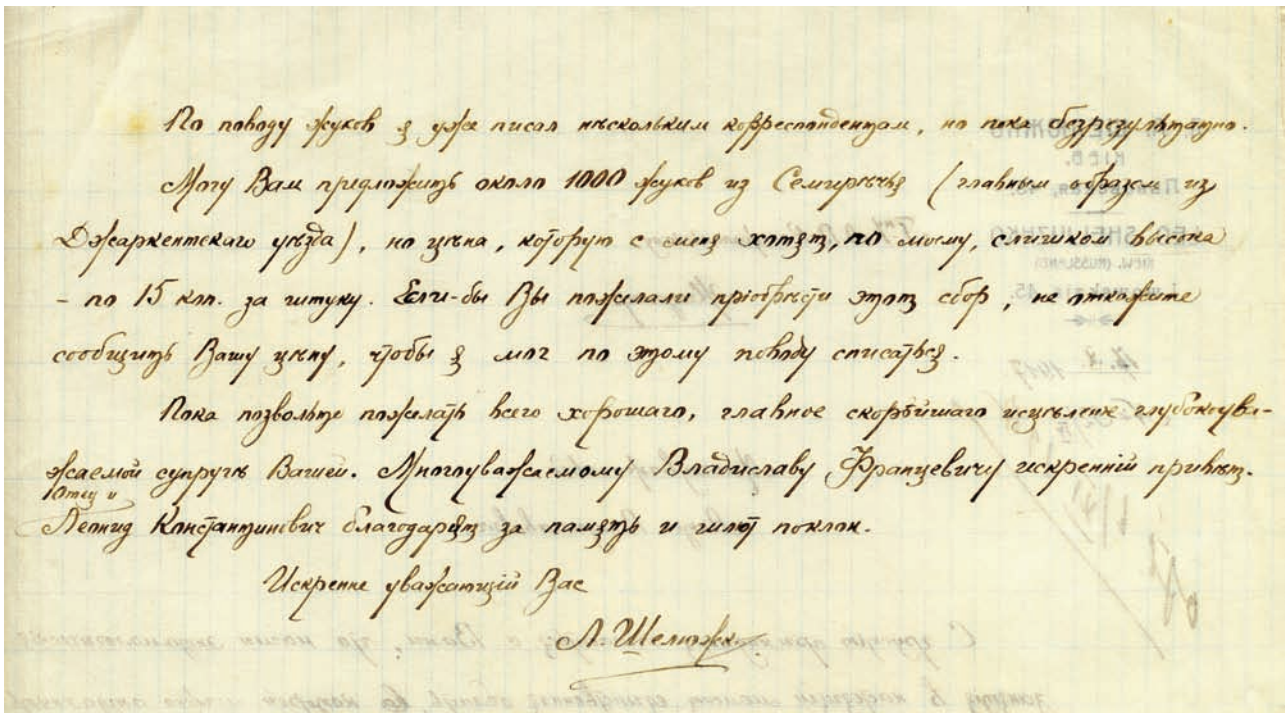 По поводу жуков я уже писал нѣскольким корреспондентам, но пока безрезультатно.
Могу Вам предложить около 1000 жуков из Семирѣчья (главным образом из
Джаркентскаго уѣзда), но цѣна, которую с меня хотят, по моему, слишком высока
– по 15 коп. за штуку. Если-бы Вы пожелали пріобрѣсти этот сбор, не откажите
сообщить Вашу цѣну, чтобы я мог по этому поводу списаться.
Пока позвольте пожелать всего хорошаго, главное скорѣйшаго исцѣленія глубокоува-
жаемой супругѣ Вашей. Многоуважаемому Владиславу Францевичу искренній привѣт.
Отец и
Леонид Константинович благодарят за память и шлют поклон.
Искренне уважающій Вас
Л. Шелюжко
KIEW. (RUSSLAND)
1917